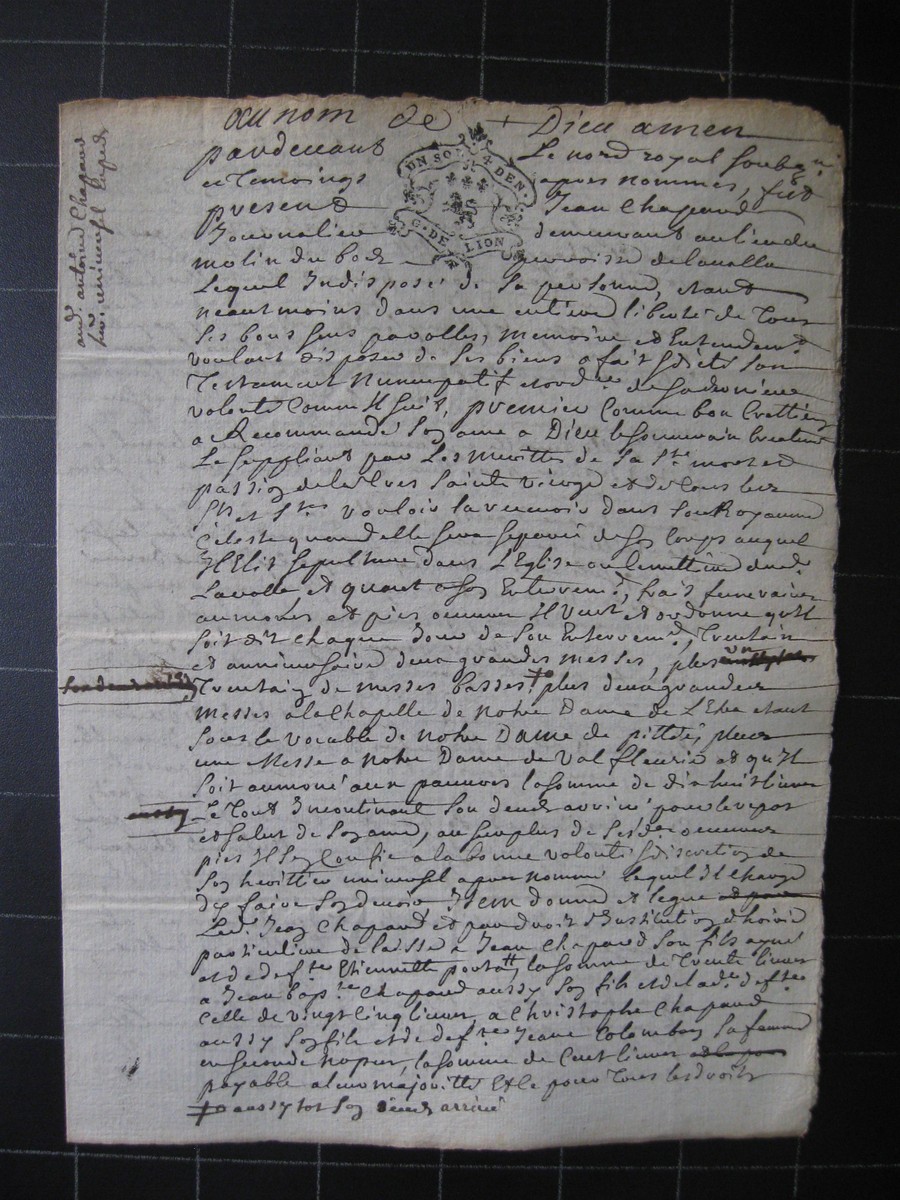 au nom de + Dieu amen
pardevant Le no.re royal soubsig.né
et Temoings apres nommes, fut
present Jean Chapard
Journalier demeurant au lieu du
molin du bost parroisse de lavalla
UN SOL DEN.
G. DE LION
Lequel Indisposé de sa personne, etant
neantmoins dans une entiere liberté de Tous
ses bons sens parolles, memoire et Entendem.t
voulant disposer de ses biens a fait & dicté son
Testament Nuncupatif et ord.re de sa derniere
volonté Comm Il suit, premier Comme bon Crettien
a Recommandé Son ame a Dieu le souverain Createur
Le suppliant par Les merittes de Sa S.te mort et
passion de la Sainte vierge et de Tous les
S.ts et S.tes vouloir la recevoir dans Son Royaume
Celeste quand elle sera separée de Son Corps auquel
Il Elit sepulture dans L'Eglise ou Cemettiere dud.
Lavalla et quant a son Enterrem.t, frais funeraires
aumones et pies oeuvres Il Veut et ordonne qu'Il
soit dit chaque Jour de Son Enterrem.t, Trentain
et anniversaire deux grandes messes, plus un
Trentain de messes basses, plus deux grandes
messes a la Chapelle de Notre Dame de L'Etra etant
sous le vocable de notre Dame de pittié, plus
une Messe a notre Dame de Val fleurie et qu'Il
soit aumoné aux pauvres la somme de dix huit livres
Le Tout Incontinant Son deceds arrivé pour le repos
et salut de Son ame, au surplus de Ses d. oeuvres
pies Il Sen Confie a la bonne volonté & discretion de
Son herittier universel apres nommé lequel Il Charge
d'en faire Son devoir Item donne et legue
Led. Jean Chapard et par droit d'Institution d'hoirie
particuliere delaisse a Jean Chapard Son fils ayné
et de def.te Etiennette la somme de Trente livres
a Jean Bap.te Chapard aussy Son fils et de lad. def.te
Celle de vingt Cinq livres, a Christophe Chapard
aussy Son fils et de def.te Jeane Colombon Sa femme
en seconde nopces, la somme de Cent livres
payable a leur majorité & le pour Tous les droits
aussy tot Son deceds arrivé
and. antoine Chapard
her. universel